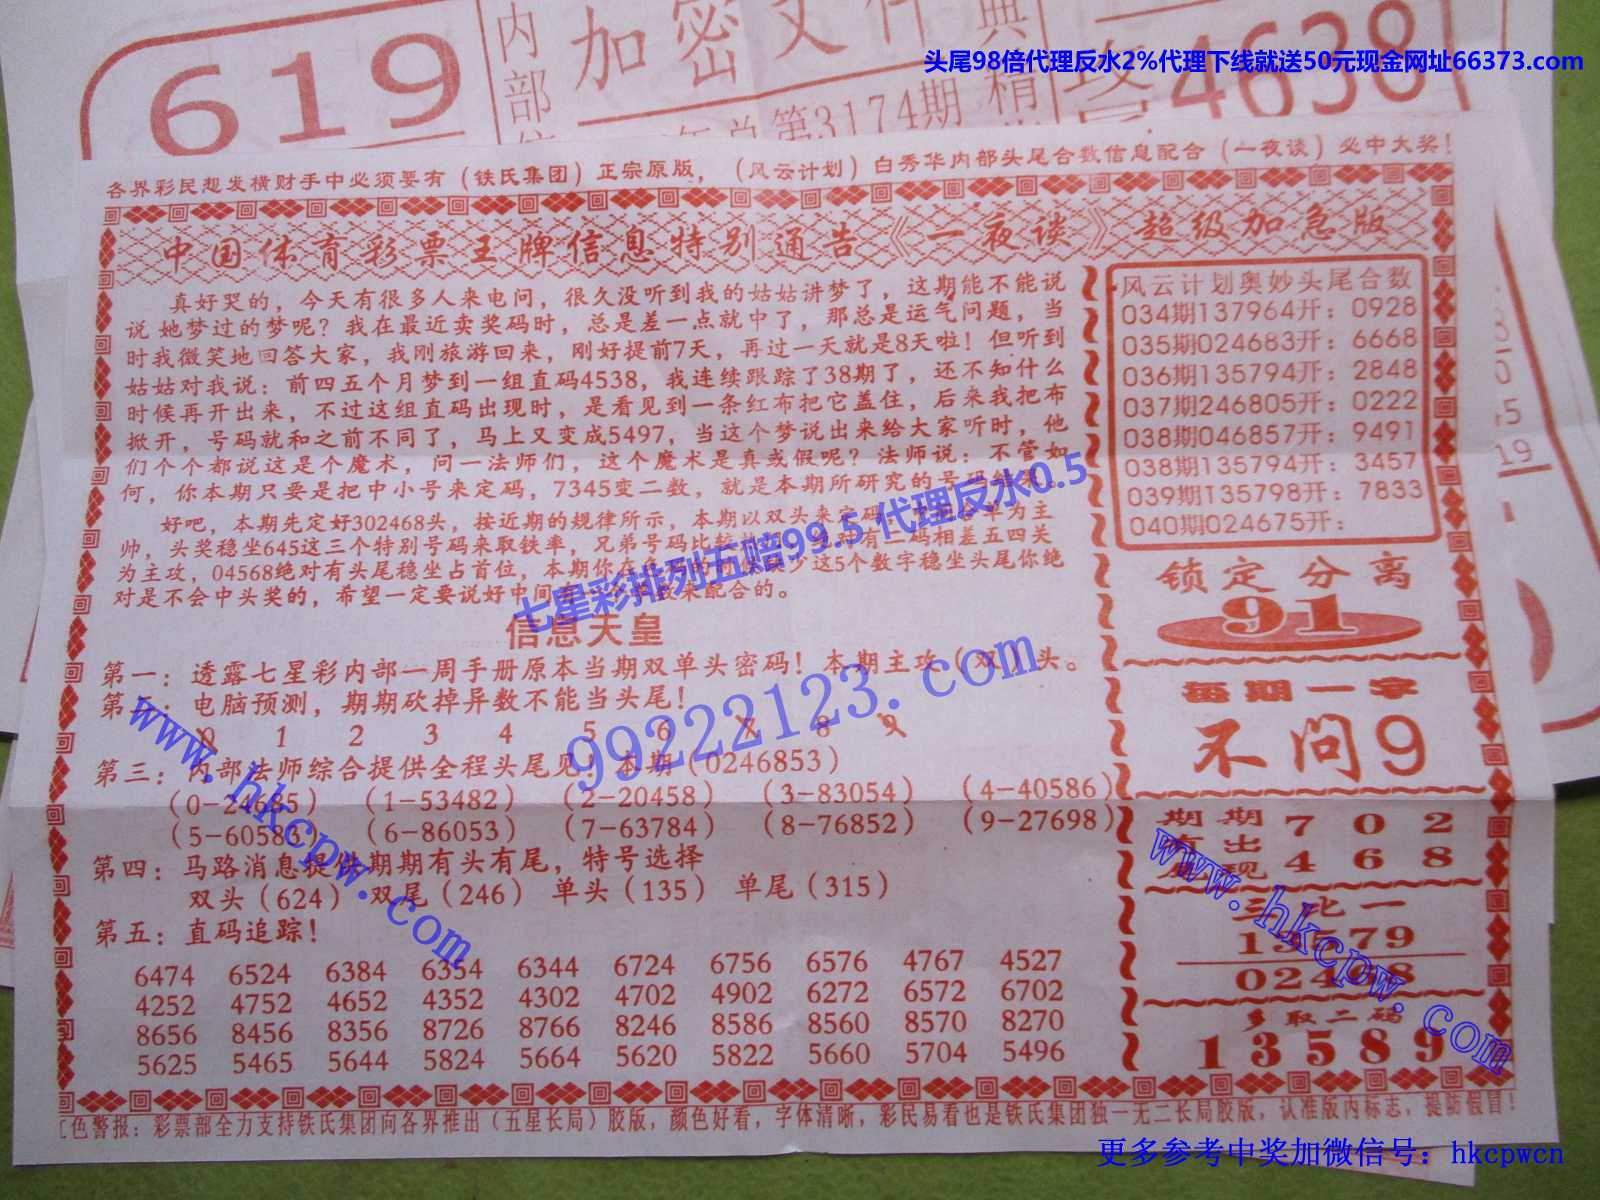 619
内部信
加密文件
第3174期
典精
4638
头尾98倍代理反水2%代理下线就送50元现金网址66373.com
各界彩民想发横财手中必须要有（铁氏集团）正宗原版，（风云计划）白秀华内部头尾合数信息配合（一夜谈）必中大奖！
中国体育彩票王牌信息特别通告《一夜谈》超级加急版
真好哭的，今天有很多人来电问，很久没听到我的姑姑讲梦了，这期能不能说
说她梦过的梦呢？我在最近卖奖码时，总是差一点就中了，那总是运气问题，当
时我微笑地回答大家，我刚旅游回来，刚好提前7天，再过一天就是8天啦！但听到
姑姑对我说：前四五个月梦到一组直码4538，我连续跟踪了38期了，还不知什么
时候再开出来，不过这组直码出现时，是看见到一条红布把它盖住，后来我把布
掀开，号码就和之前不同了，马上又变成5497，当这个梦说出来给大家听时，他
们个个都说这是个魔术，问一法师们，这个魔术是真或假呢？法师说：不管如
何，你本期只要是把中小号来定码，7345变二数，就是本期所研究的号码结果。
好吧，本期先定好302468头，按近期的规律所示，本期以双头来定码，单为主
帅，头奖稳坐645这三个特别号码来取铁率，兄弟号码比较，绝对有二码相差五四关
为主攻，04568绝对有头尾稳坐占首位，本期你在少这5个数字稳坐头尾你绝
对是不会中头奖的，希望一定要说好中间有数来配合的。
七星彩排列五赔99.5 代理反水0.5
信息天皇
第一：透露七星彩内部一周手册原本当期双单头密码！本期主攻（双）头。
第二：电脑预测，期期砍掉异数不能当头尾！
0 1 2 3 4 5 6 7 8 9
第三：内部法师综合提供全程头尾见！本期（0246853）
（0-24685）（1-53482）（2-20458）（3-83054）（4-40586）
（5-60583）（6-86053）（7-63784）（8-76852）（9-27698）
第四：马路消息提供期期有头有尾，特号选择
双头（624）双尾（246）单头（135）单尾（315）
第五：直码追踪！
6474 6524 6384 6354 6344 6724 6756 6576 4767 4527
4252 4752 4652 4352 4302 4702 4902 6272 6572 6702
8656 8456 8356 8726 8766 8246 8586 8560 8570 8270
5625 5465 5644 5824 5664 5620 5822 5660 5704 5496
风云计划奥妙头尾合数
034期137964开：0928
035期024683开：6668
036期135794开：2848
037期246805开：0222
038期046857开：9491
038期135794开：3457
039期135798开：7833
040期024675开：
锁定分离
91
每期一字
不问9
期期 7 0 2
有出
现 4 6 8
三比一
13579
02468
多取二码
13589
色警报：彩票部全力支持铁氏集团向各界推出（五星长局）胶版，颜色好看，字体清晰，彩民易看也是铁氏集团独一无二长局胶版，认准版内标志，提防假冒！
www.hkcpw.com
99222123.com
www.hkcpw.com
更多参考中奖加微信号：hkcpwcn